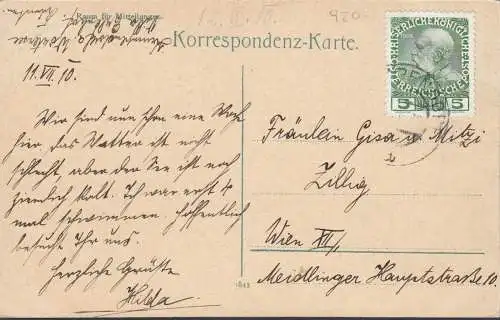 Raum für Mitteilungen
920.-
Korrespondenz-Karte.
11. VII. 10.
Wir sind nun schon eine Woche
hier, das Wetter ist nicht
schlecht, aber der See ist noch
ziemlich kalt. Ich war erst 4
mal schwimmen. Hoffentlich
besucht Ihr uns.
Herzliche Grüße
Hilda
5 5
Fräulein Gisa u. Mitzi
Zillig
Wien XII,
Meidlinger Hauptstraße 10.